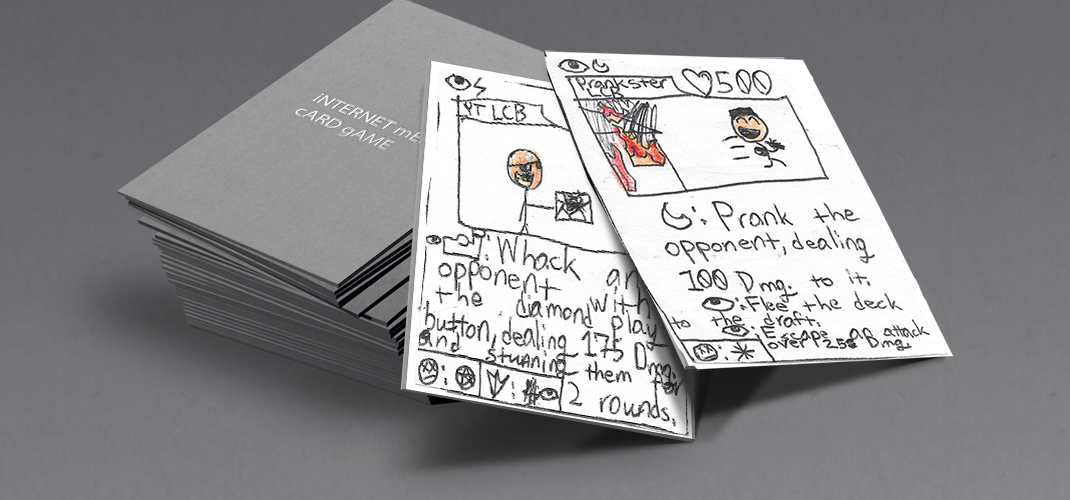 iNTERNET mE
cARD gAME
YT LCB
: Whack an
opponent with
the diamond play
button, dealing 175 Dmg.
and stunning them for
2 rounds.
Prankster
LCB
500
: Prank the
opponent, dealing
100 Dmg. to it.
: Flee the deck
to the draft.
: Escape an attack
over 250 Dmg.